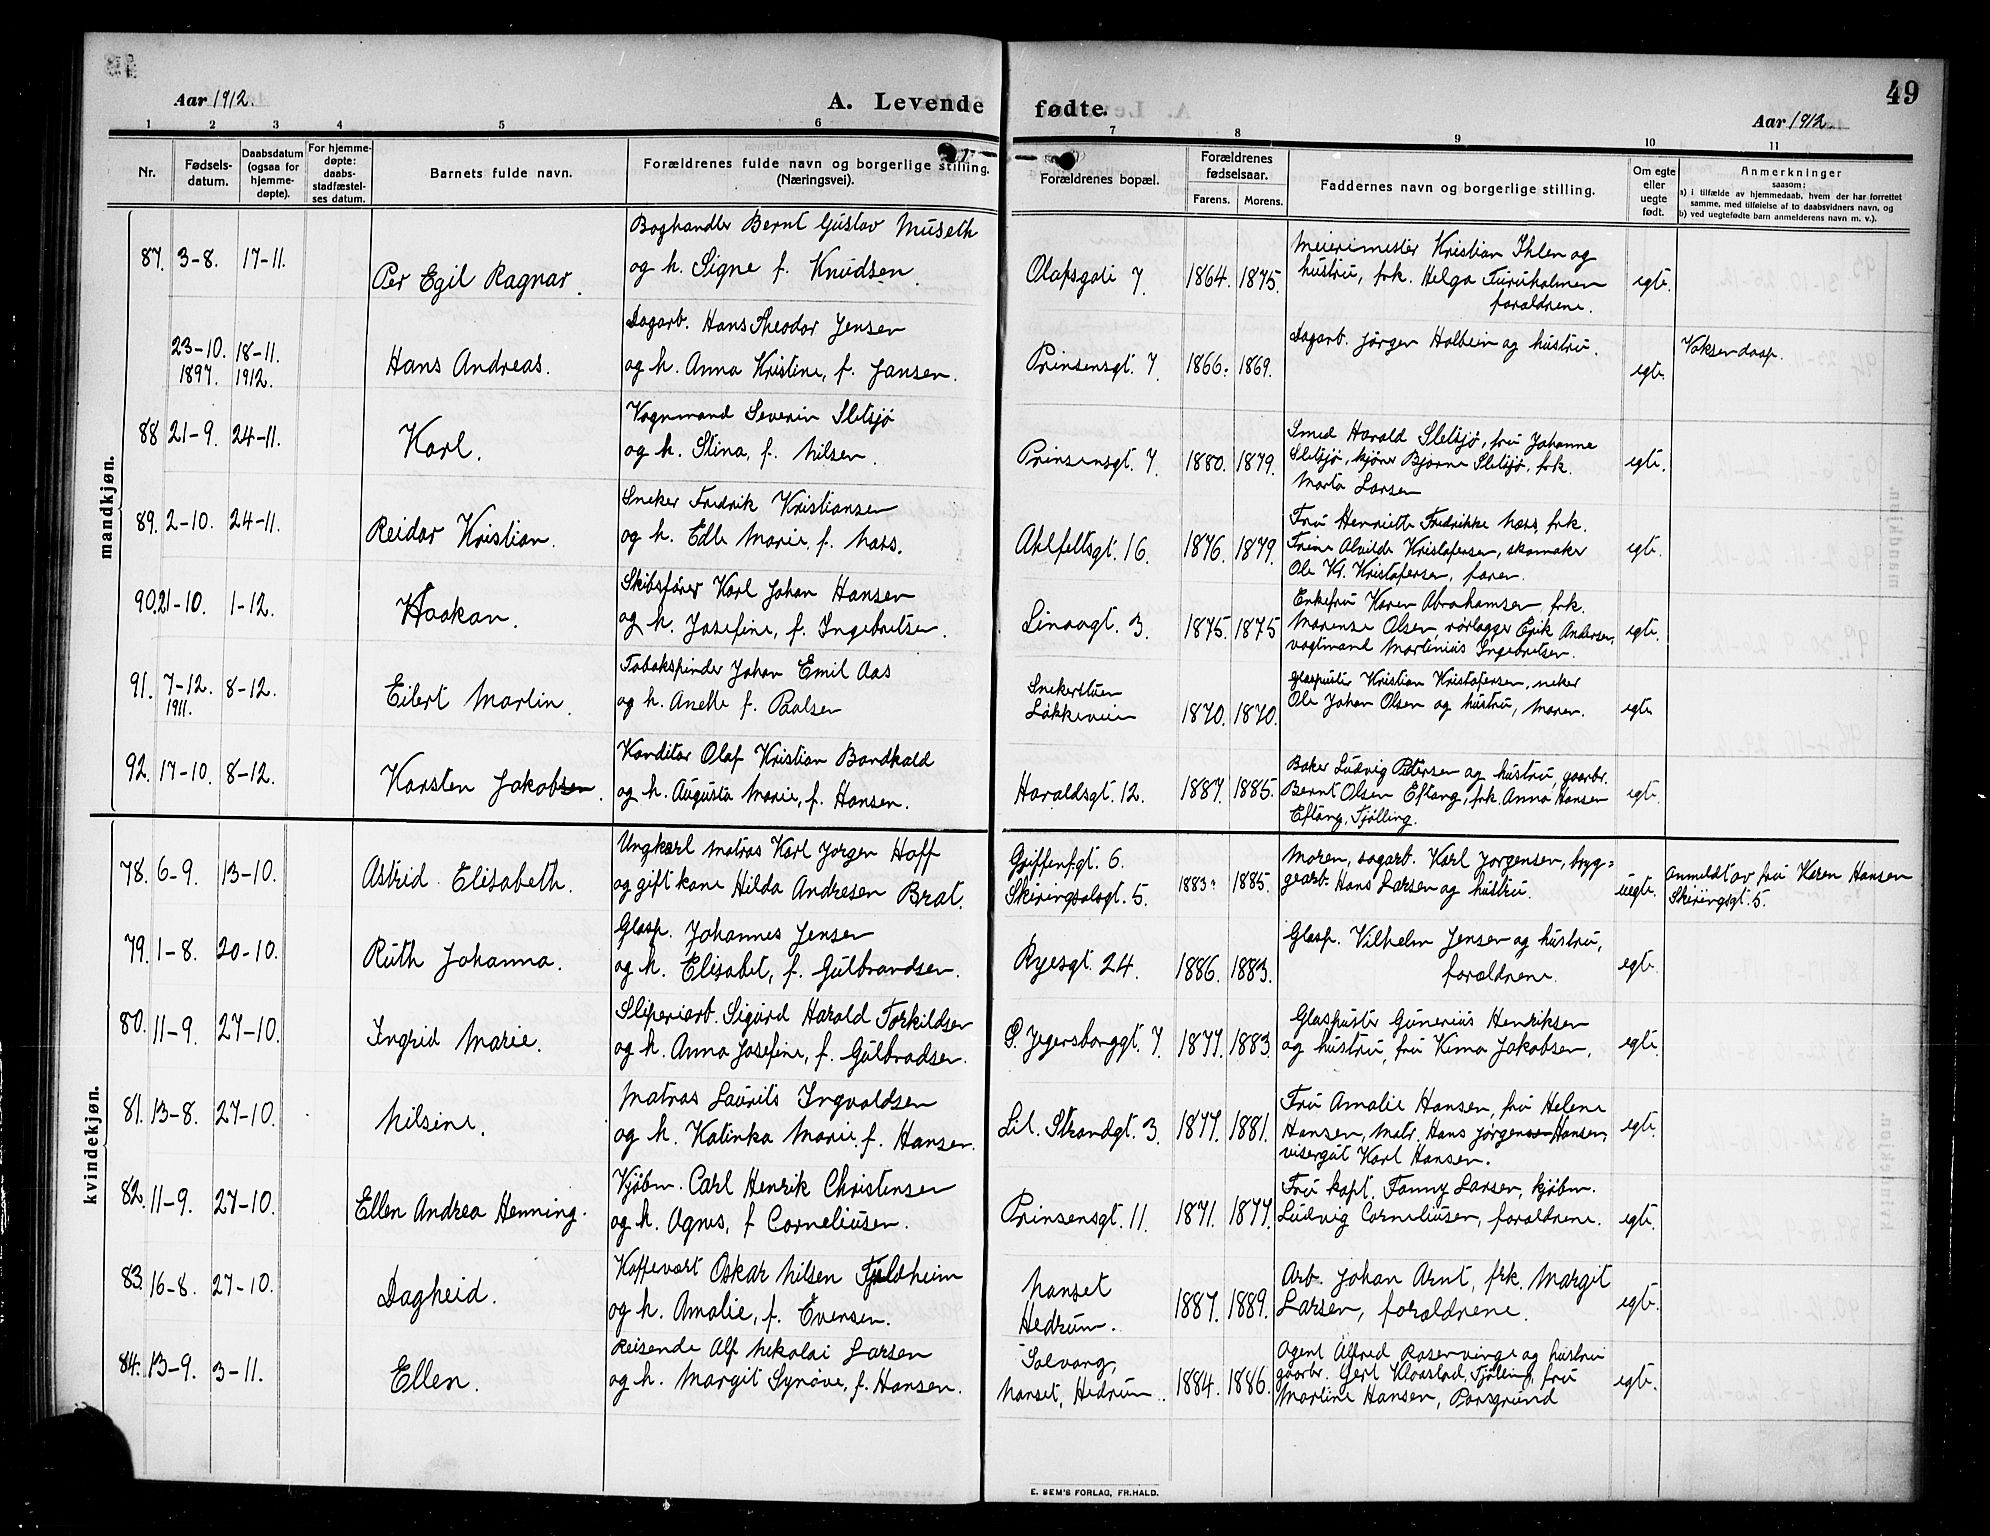 49
Aar 1912.
A. Levende fødte.
Aar 1912.
1 2 3 4 5 6 7 8 9 10 11
Nr.
Fødsels-
datum.
Daabsdatum
(ogsaa for
hjemme-
døpte).
For hjemme-
døpte:
daabs-
stadfæstel-
ses datum.
Barnets fulde navn.
Forældrenes fulde navn og borgerlige stilling.
(Næringsvei).
Forældrenes bopæl.
Forældrenes
fødselsaar.
Farens. Morens.
Faddernes navn og borgerlige stilling.
Om egte
eller
uegte
født.
Anmerkninger
saasom:
a) i tilfælde av hjemmedaab, hvem der har forrettet
samme, med tilføielse af to daabsvidners navn, og
b) ved uegtefødte barn anmelderens navn m. v.).
mandkjøn.
87. 3-8. 17-11.
Per Egil Ragnar.
Boghandler Bernt Gustav Museth
og h. Signe f. Knudsen.
Olafsgate 7
1864. 1875.
Meierimester Kristian Ihlen og
hustru, frk. Helga Furuholmen
forældrene.
egte.
23-10. 18-11.
1897. 1912.
Hans Andreas.
Dagarb. Hans Theodor Jensen
og h. Anna Kristine, f. Jansen.
Prinsensgt. 7
1866. 1869.
Dagarb. Jørgen Holbein og hustru.
egte.
Voksendaap.
88 21-9. 24-11.
Karl.
Vognmand Severin Sletsjø
og h. Stina, f. Nilsen.
Prinsensgt. 7
1880. 1879.
Smed Harald Sletsjø, fru Johanne
Sletsjø, kjører Bjarne Sletsjø, frk.
Marta Larsen
egte.
89. 2-10. 24-11.
Reidar Kristian.
Sneker Fredrik Kristiansen
og h. Edle Marie, f. Næss.
Ahlfeltsgt. 16.
1876. 1879.
Fru Henriette Fredrikke Næss, frk.
Trine Alvilde Kristofersen, skomaker
Ole Kr. Kristofersen, faren.
egte.
90. 21-10. 1-12.
Haakon.
Skibsfører Karl Johan Hansen
og h. Josefine, f. Ingebretsen.
Linaagt. 3.
1875. 1875
Enkefru Karen Abrahamsen, frk.
Marense Olsen, rørlægger Erik Andersen,
vogtmand Martinius Ingebretsen.
egte.
91. 7-12. 8-12.
1911.
Eilert Martin.
Tobakspinder Johan Emil Aas
og h. Anette f. Paalsen
Snekerstuen
Løkkeveien
1870. 1870.
Glaspuster Kristian Kristofersen, sneker
Ole Johan Olsen og hustru, moren.
egte
92. 17-10. 8-12.
Karsten Jakobsen.
Konditor Olaf Kristian Bondkald
og h. Augusta Marie, f. Hansen.
Haraldsgt. 12.
1887. 1885.
Baker Ludvig Pettersen og hustru, gaarbr.
Bernt Olsen Eftang, frk. Anna Hansen
Eftang, Tjølling.
egte.
kvindekjøn.
78. 6-9. 13-10.
Astrid Elisabeth.
Ungkarl matros Karl Jørgen Hoff
og gift kone Hilda Andresen Brat.
Griffenf.gt. 6.
Skiringsalsgt. 5.
1883. 1885.
Moren, sagarb. Karl Jørgensen, bryg=
gearb. Hans Larsen og hustru.
uegte.
Anmeldt av fru Karen Hansen
Skiringsgt. 5.
79. 1-8. 20-10.
Ruth Johanna.
Glasp. Johannes Jensen
og h. Elisabet, f. Gulbrandsen.
Ryesgt. 24.
1886. 1883.
Glasp. Vilhelm Jensen og hustru,
forældrene.
egte.
80. 11-9. 27-10.
Ingrid Marie.
Sliperiarb. Sigurd Harald Torkildsen
og h. Anna Josefine, f. Gulbradsen.
P. Jegersborggt. 7.
1877. 1883.
Glaspuster Gunerius Henriksen
og hustru, fru Kima Jakobsen.
egte.
81. 13-8. 27-10.
Nilsine.
Matros Laurits Ingvaldsen
og h. Katinka Marie, f. Hansen.
Lil. Strandgt. 3.
1877. 1881.
Fru Amalie Hansen, fru Helene
Hansen, Matr. Hans Jørgensen Hansen,
visergut Karl Hansen.
egte.
82. 11-9. 27-10.
Ellen Andrea Henning.
Kjøbm. Carl Henrik Christensen
og h. Agnes, f. Corneliusen.
Prinsensgt. 11.
1871. 1877.
Fru kapt. Fanny Larsen, kjøbm.
Ludvig Corneliusen, forældrene.
egte.
83. 16-8. 27-10.
Dagheid.
Kaffevært Oskar Nilsen Fjeldheim
og h. Amalie, f. Evensen.
Nanset
Hedrum.
1887. 1889.
Arb. Johan Arnt, frk. Margit
Larsen, forældrene.
egte.
84. 13-9. 3-11.
Ellen.
Reisende Alf Nikolai Larsen
og h. Margit Synøve, f. Hansen.
Solvang,
Nanset, Hedrum.
1884. 1886.
Agent Alfred Rosenvinge og hustru
gaarbr. Gert Klaastad, Tjølling, fru
Martine Hansen, Porsgrund
egte.
E. SEM'S FORLAG, FR.HALD.